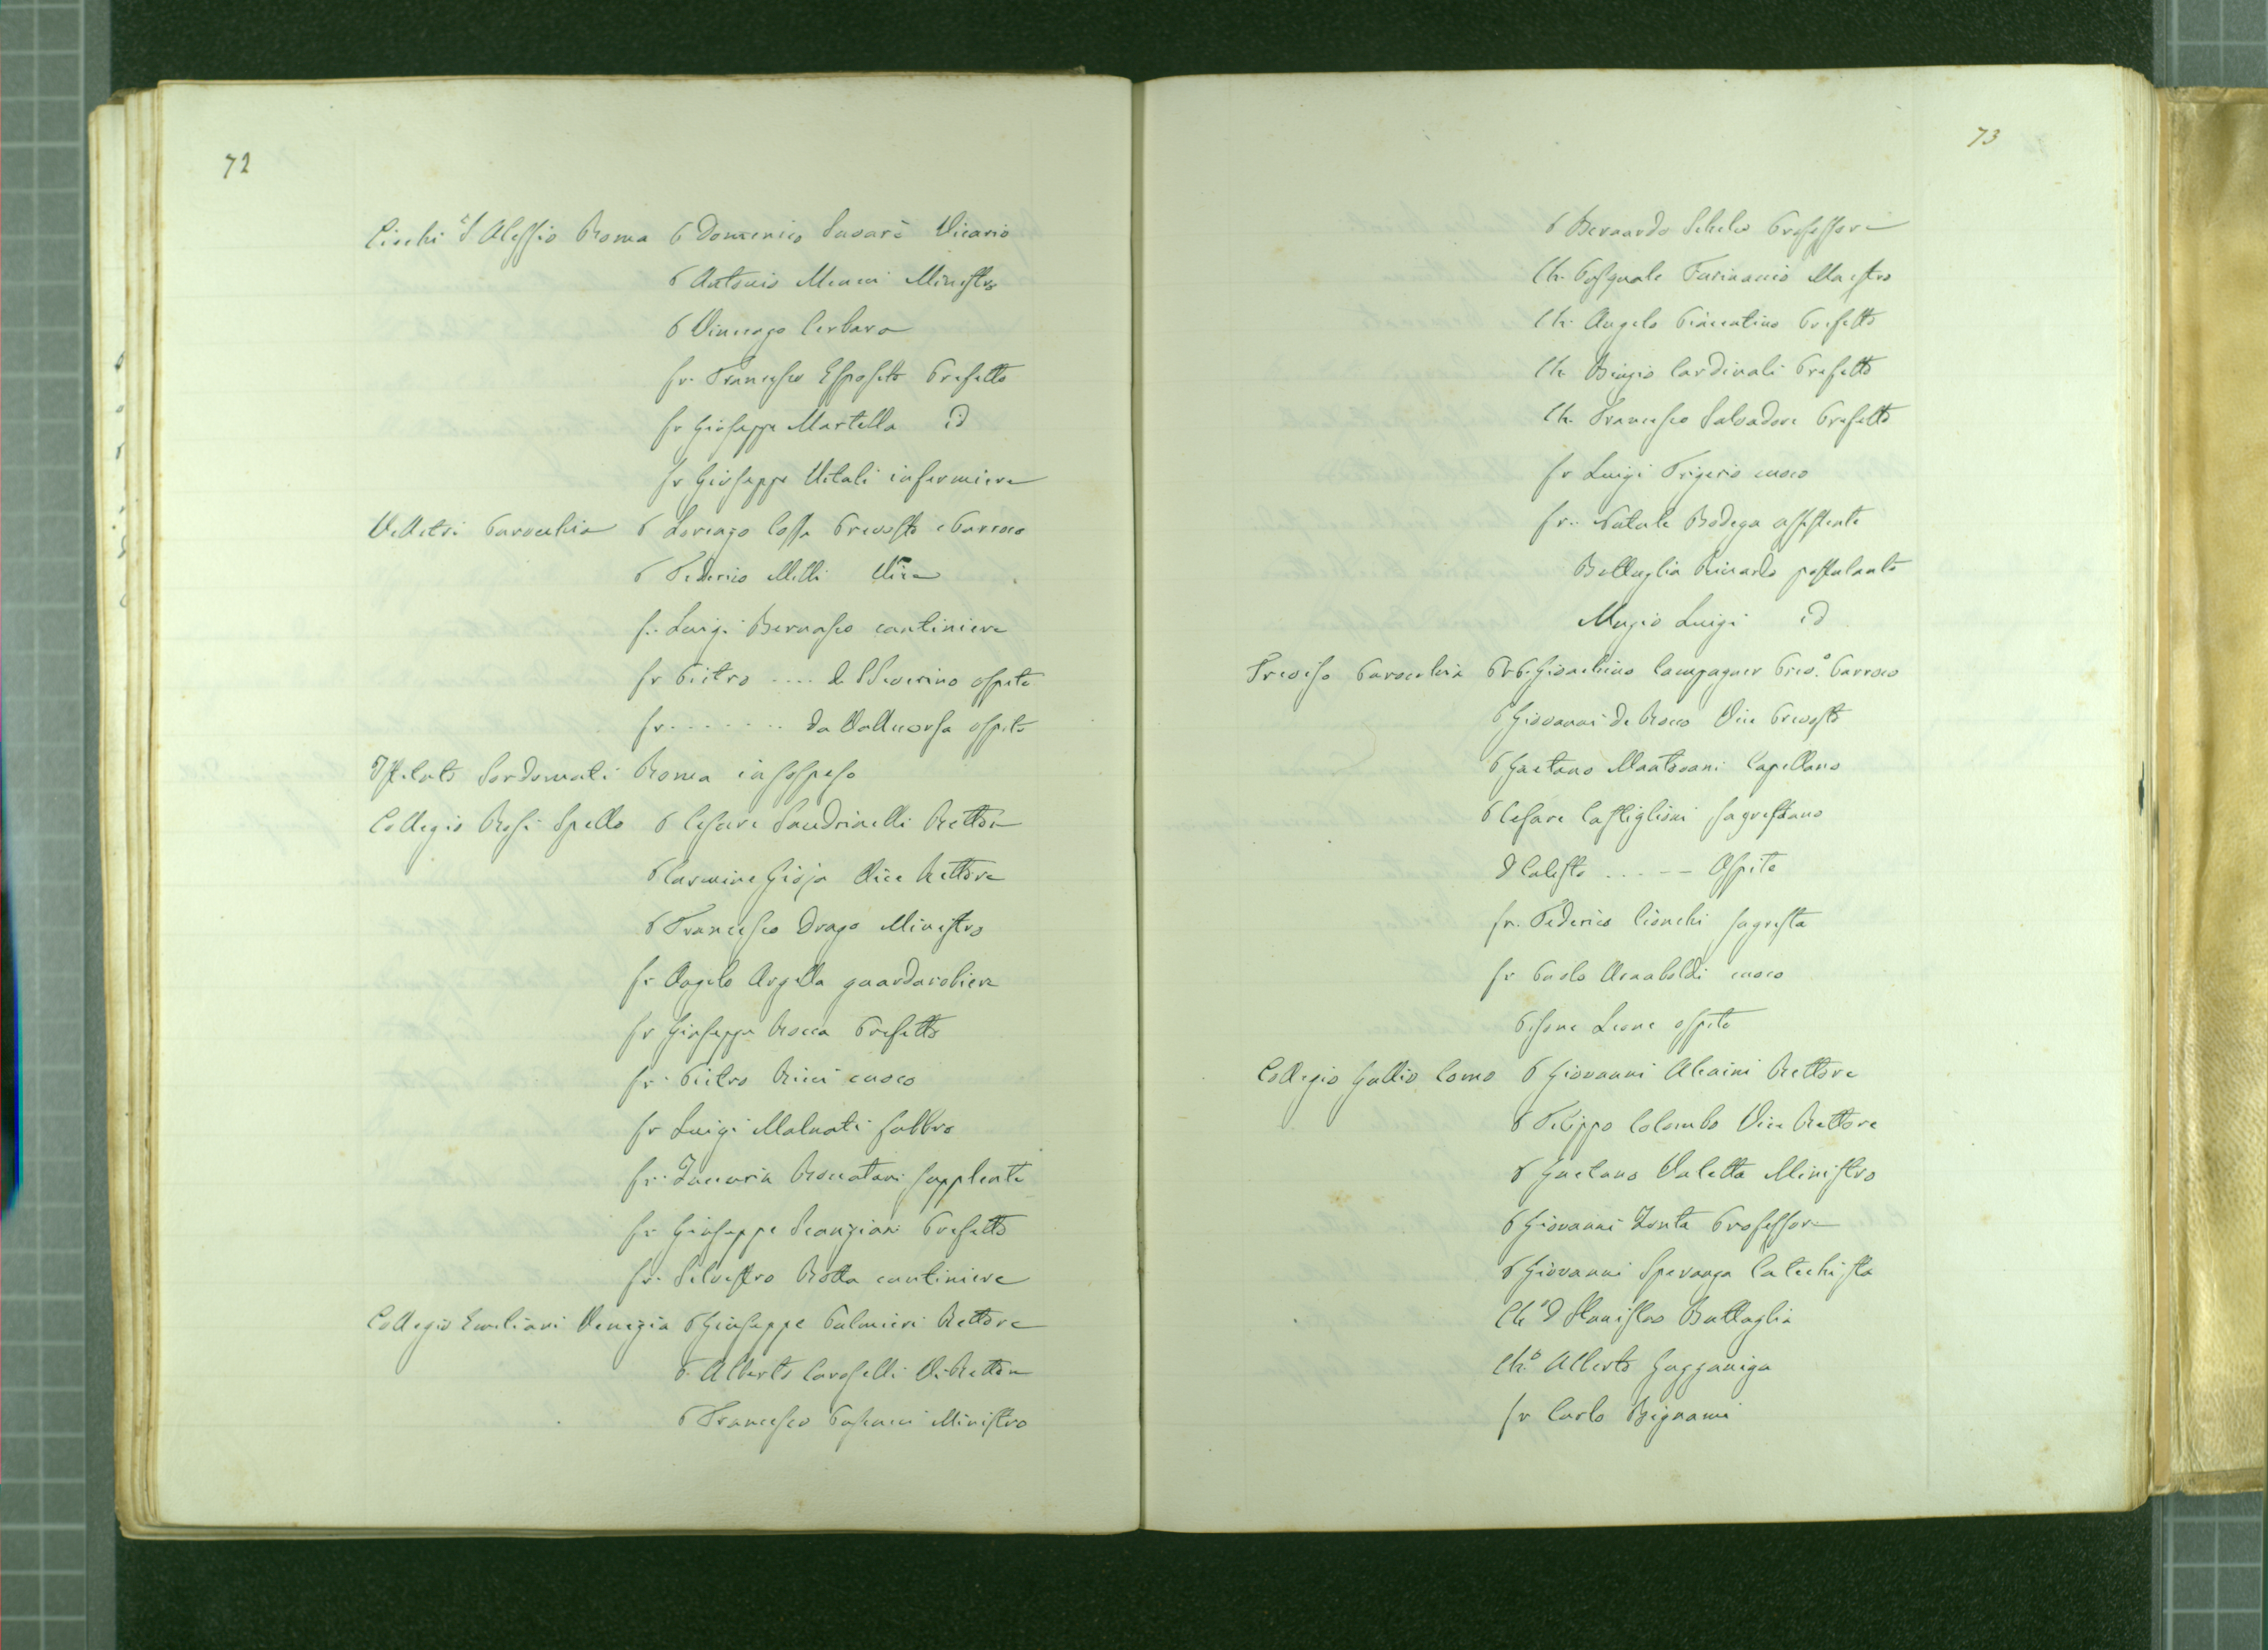 72
Ciechi S. Alessio Roma P Domenico Savarè Vicario
P Antonio Menei Ministro
P Vincenzo Cerbara
fr. Francesco Esposito Prefetto
fr Giuseppe Martella id
fr Giuseppe Vitali infermiere
Velletri Parocchia P Lorenzo Cossa Prevosto e Parroco
P Federico Milli Vice
fr. Luigi Bernasco cantiniere
fr Pietro .... di S Severino ospite
fr. ....... da Vallecorsa ospite
Istituto Sordomuti Roma in sospeso
Collegio Rosi Spello P Cesare Sandrinelli Rettore
P Carmine Gioja Vice Rettore
P Francesco Drago Ministro
fr Angelo Argella guardarobiere
fr Giuseppe Rocca Prefetto
fr. Pietro Ricci cuoco
fr Luigi Malnati fabbro
fr. Zaccaria Roccatani supplente
fr Giuseppe Scanziani Prefetto
fr. Silvestro Rotta cantiniere
Collegio Emiliani Venezia P Giuseppe Palmieri Rettore
P. Alberto Caroselli V. Rettore
P Francesco Pascucci Ministro
73
P Bernardo Professore
Ch. Pasquale Farinaccio Maestro
Ch. Angelo Piacentino Prefetto
Ch. Biagio Cardinali Prefetto
Ch. Francesco Salvadore Prefetto
fr Luigi Frigerio cuoco
fr. Natale Bodega assistente
Battaglia Riccardo postulante
Muzio Luigi id
Treviso Parocchia P. Gioachino Campagner Prev.º Parroco
P Giovanni de Rocco Vice Prevosto
P Gaetano Mantovani Capellano
P Cesare Castiglioni sagrestano
D Calisto ..... Ospite
fr. Federico Cionchi sagrista
fr Paolo Arnaboldi cuoco
Leone ospite
Collegio Gallio Como P Giovanni Alcaini Rettore
P Filippo Colombo Vice Rettore
P Gaetano Valletta Ministro
P Giovanni Zonta Professore
P Giovanni Speranza Catechista
Ch.º D Stanislao Battaglia
Ch.º Alberto Gazzaniga
fr Carlo Bignami